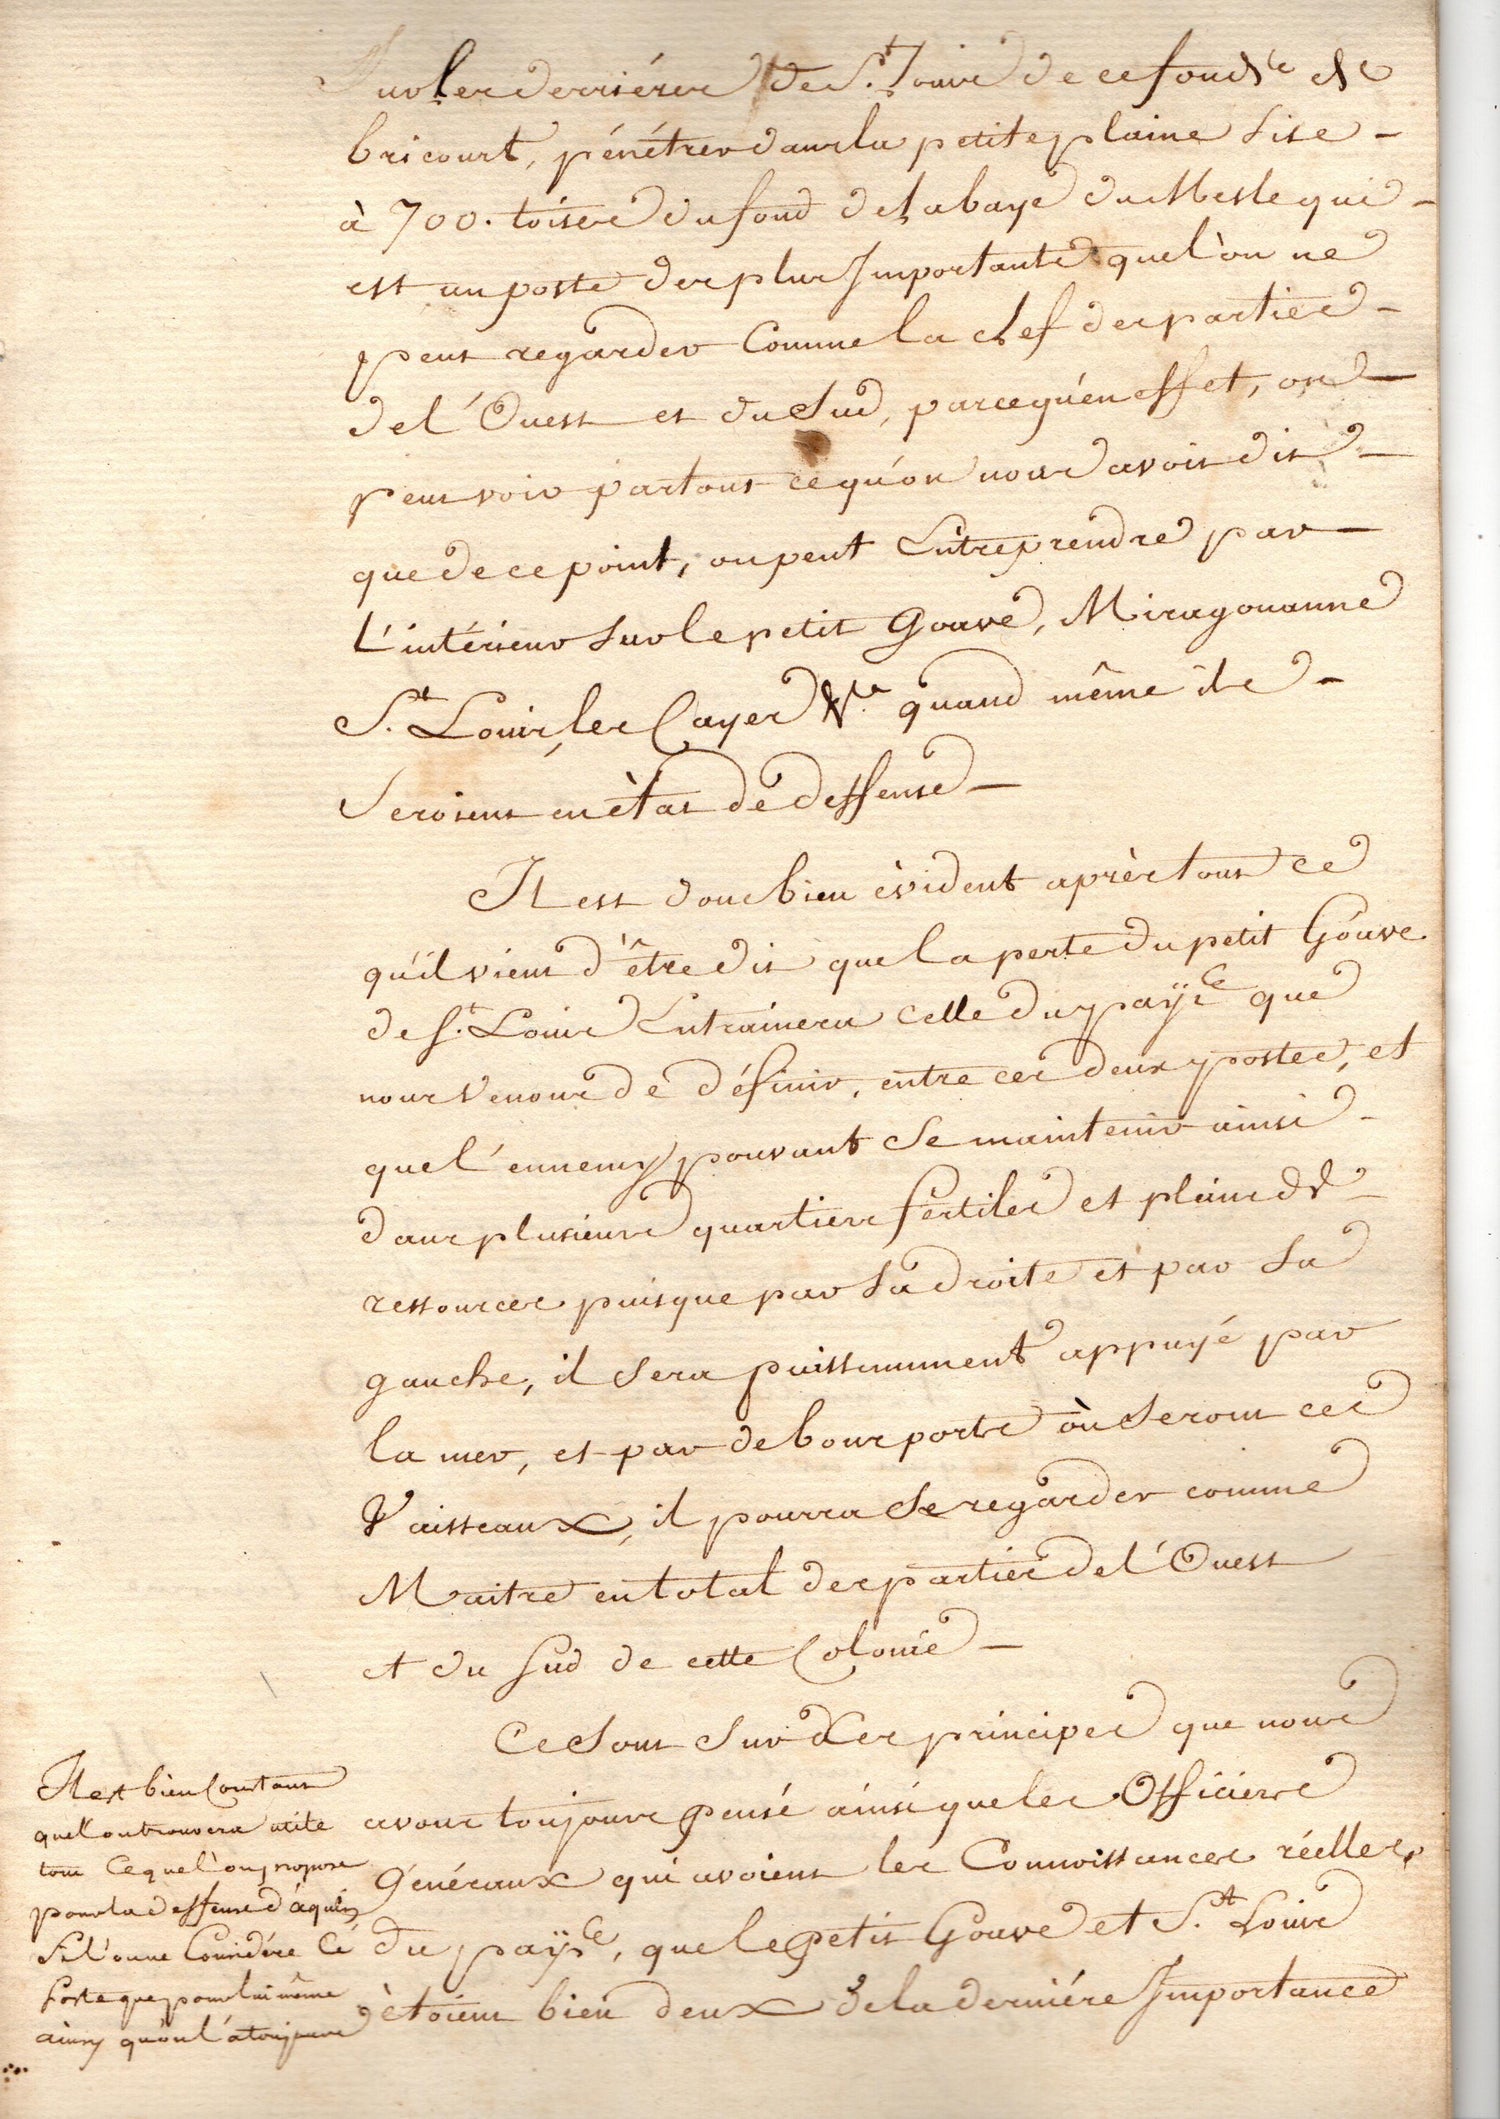 Sur les derriéres de St. Louis de ce fonds &
bricourt, pénétrer dans la petite plaine Sise
à 700. toises du fond de la baye du Mesle qui
est un poste des plus Importants que l'on ne
peut regarder Comme la clef des parties
de l'Ouest et du Sud, parcequ'én effet, on
peut voir partout ce qu'on nous avoit dit
que de ce point, on peut Entreprendre par
L'intérieur Sur le petit Goave, Miragouanne
St. Louis, les Cayes &a. quand même ils
Seroient en ètat de deffense
Il est donc bien èvident après tout ce
qu'il vient d'être dit que la perte du petit Goave
de St. Louis Entrainera Celle du pays que
nous Venons de définir, entre ces deux postes, et
que l'ennemy pouvant Se maintenir ainsi
dans plusieurs quartiers fertiles et pleins de
ressources puisque par Sa droite et par Sa
gauche, il Sera puissamment appuyé par
la mer, et par de bons ports où Seront ces
Vaisseaux, il pourra Se regarder comme
Maitre en total des parties de l'Ouest
et du Sud de cette Colonie
Ce Sont Sur Ces principes que nous
avons toujours pensé ainsi que les Officiers
Généraux qui avoient les Connoissances réelles
du pays, que le petit Goave et St. Louis
ètoient bien deux de la derniére Importance
Il est bien Constant
que l'on trouvera utile
tout Ce que l'on propose
pour la deffense d'aquin
Si l'on ne Considére Ce
Poste que pour lui même
ainsy qu'on l'a toujours